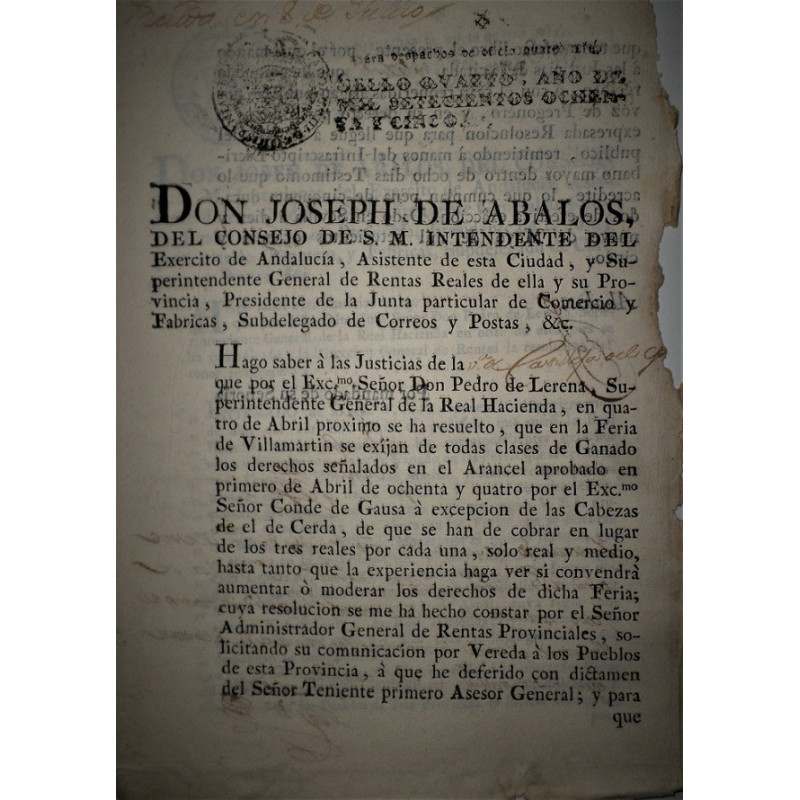 Para despachos de oficio quatro mrs.
SELLO QVARTO, AÑO DE
MIL SETECIENTOS OCHEN-
TA Y CINCO.
DON JOSEPH DE ABALOS,
DEL CONSEJO DE S. M. INTENDENTE DEL
Exercito de Andalucía, Asistente de esta Ciudad, y Su-
perintendente General de Rentas Reales de ella y su Pro-
vincia, Presidente de la Junta particular de Comercio y
Fabricas, Subdelegado de Correos y Postas, &c.
Hago saber à las Justicias de la
que por el Exc.mo Señor Don Pedro de Lerena, Su-
perintendente General de la Real Hacienda, en qua-
tro de Abril proximo se ha resuelto, que en la Feria
de Villamartin se exîjan de todas clases de Ganado
los derechos señalados en el Arancel aprobado en
primero de Abril de ochenta y quatro por el Exc.mo
Señor Conde de Gausa à excepcion de las Cabezas
de el de Cerda, de que se han de cobrar en lugar
de los tres reales por cada una, solo real y medio,
hasta tanto que la experiencia haga ver si convendrà
aumentar ò moderar los derechos de dicha Feria;
cuya resolucion se me ha hecho constar por el Señor
Administrador General de Rentas Provinciales, so-
licitando su comunicacion por Vereda à los Pueblos
de esta Provincia, à que he deferido con dictamen
del Señor Teniente primero Asesor General; y para
que